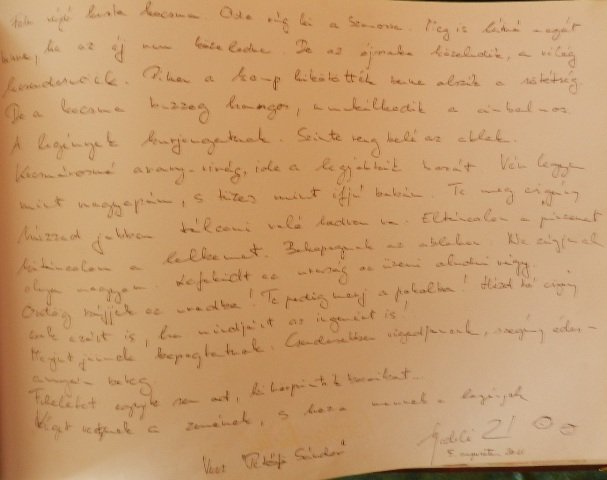 Falu végé kurta kocsma. Oda rúg ki a Szamosra. Meg is látná magát
benne, ha az éj nem közeledne. De az éjszaka közeledik, a világ
lecsendesedik. Pihen a komp kikötötték benne alszik a sötétség.
De a kocsma bezzeg hangos, munkálkodik a cimbalmos.
A legények kurjongatnak. Szinte reng belé az ablak.
Kocsmárosné arany-virág, ide a legjobbik borát. Vén legyen
mint nagyapám, s tüzes mint ifjú babám. Te meg cigány
húzzad jobban táncolni való kedvem va. Eltáncolom a pénzemet
kitáncolom a lelkemet. Bekopognak az ablakon. Ne zúgjanak
olyan nagyon. Lefeküdt az uraság azt üzeni aludni vágy.
Ördög bújjék az uradba! Te pedig menj a pokolba! Húzd rá cigány
csak azért is, ha mindjárt az ingemért is!
Megint jönnek kopogtatnak. Csendesebben vigadjanak, szegény édes-
anyám beteg.
Feleletet egyik sem ad, kihörpintik boraikat.
Véget vetnek a zenének, s haza mennek a legények
Vers "Petőfi Sándor"
21
5. augusztus